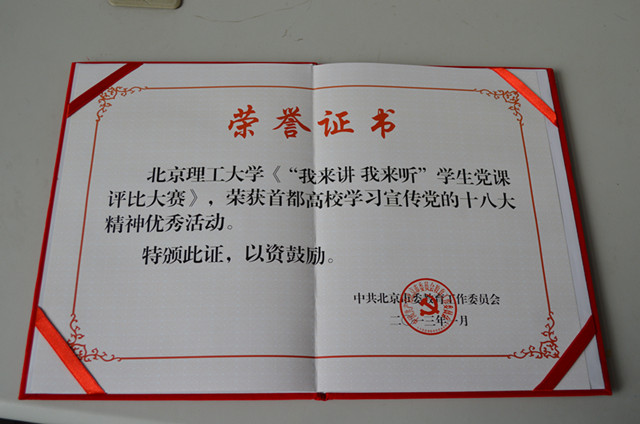 荣誉证书
北京理工大学《“我来讲 我来听”学生党课
评比大赛》，荣获首都高校学习宣传党的十八大
精神优秀活动。
特颁此证，以资鼓励。
中共北京市委教育工作委员会
二〇一三年一月